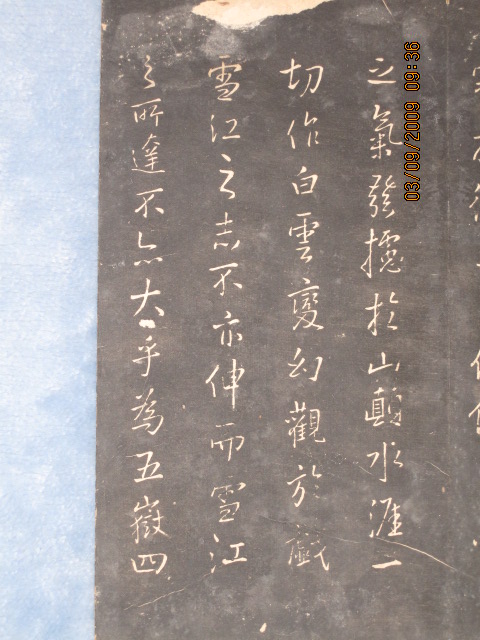 之氣發攄於山顛水涯一
切作白雲變幻觀於戲
雪江之志不亦伸而雪江
之所達不亦大乎為五嶽四
03/09/2009 09:36